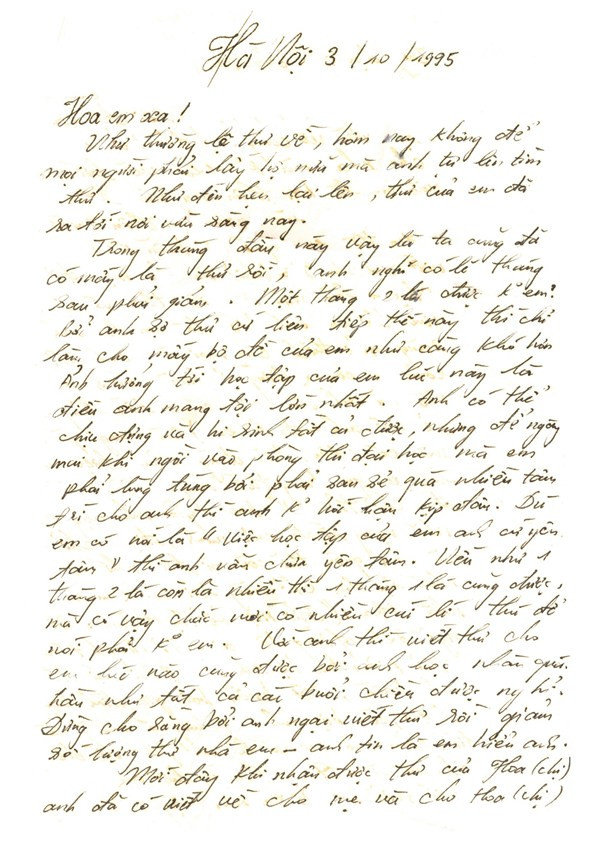 Hà Nội 3/10/1995
Hoa em xa!
Như thường lệ thư về, hôm nay không để
mọi người phải lấy hộ nữa mà anh tự lên tìm
thư. Như đến hẹn lại lên, thư của em đã
ra tới nơi vừa sáng nay.
Trong tháng đầu này vậy là ta cũng đã
có mấy lá thư rồi, anh nghĩ có lẽ tháng
sau phải giảm. Một tháng 2 lá được k° em?
Bởi anh sợ thư cứ liên tiếp thế này thì chỉ
làm cho mấy bộ đề của em như càng khó hơn
Ảnh hưởng tới học tập của em lúc này là
điều anh mang tội lớn nhất. Anh có thể
chịu đựng và hi sinh tất cả được, nhưng để ngày
mai khi ngồi vào phòng thi đại học mà em
phải lúng túng bởi phải san sẻ quá nhiều tâm
trí cho anh thì anh k° hối hận kịp đâu. Dù
em có nói là "việc học tập của em anh cứ yên
tâm" thì anh vẫn chưa yên tâm. Nếu như 1
tháng 2 lá còn là nhiều thì 1 tháng 1 lá cũng được,
mà có vậy chắc mới có nhiều cái li thú để
nói phải k° em. Với anh thì viết thư cho
em lúc nào cũng được bởi anh học nhàn
hầu như tất cả các buổi chiều được nghỉ.
Đừng cho rằng bởi anh ngại viết thư rồi giảm
số lượng thư nhá em – anh tin là em hiểu anh.
Mới đây khi nhận được thư của Hoa (chị)
anh đã có viết về cho mẹ và cho Hoa (chị)